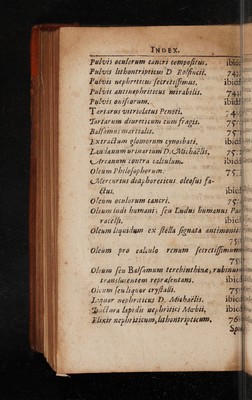 INDEX.
Pulvis oculorum cancri compositus. ibid
Pulvis lithontripticus D. Rolfincii. 74
Pulvis nephriticus secretissimus. ibid
Pulvis antinephriticus mirabilis. 74
Pulvis onisiorum. ibid
Tartarus vitriolatus Penoti. 74
Tartarum diureticum cum fragis. 75
Balsamus martialis. 75
Extractum glomorum cynosbati. ibid
Laudanum urinarium D. Michaëlis. 75
Arcanum contra calculum. ibid
Oleum Philosophorum. 75
Mercurius diaphoreticus oleosus fa-
ctus. ibid
Oleum oculorum cancri. 75
Oleum ludi humani, seu Ludus humanus Pa-
racelsi. ibid
Oleum liquidum ex stella signata antimonii
75
Oleum pro calculo renum secretissimum
75
Oleum seu Balsamum terebinthinæ, rubinum
translucentem repræsentans. ibid
Oleum seu liquor crystalli. 75
Liquor nephriticus D. Michaëlis. ibid
Tinctura lapidis nephritici Mœbii, ibid
Elixir nephriticum, lithontripticum. 76
Spiri